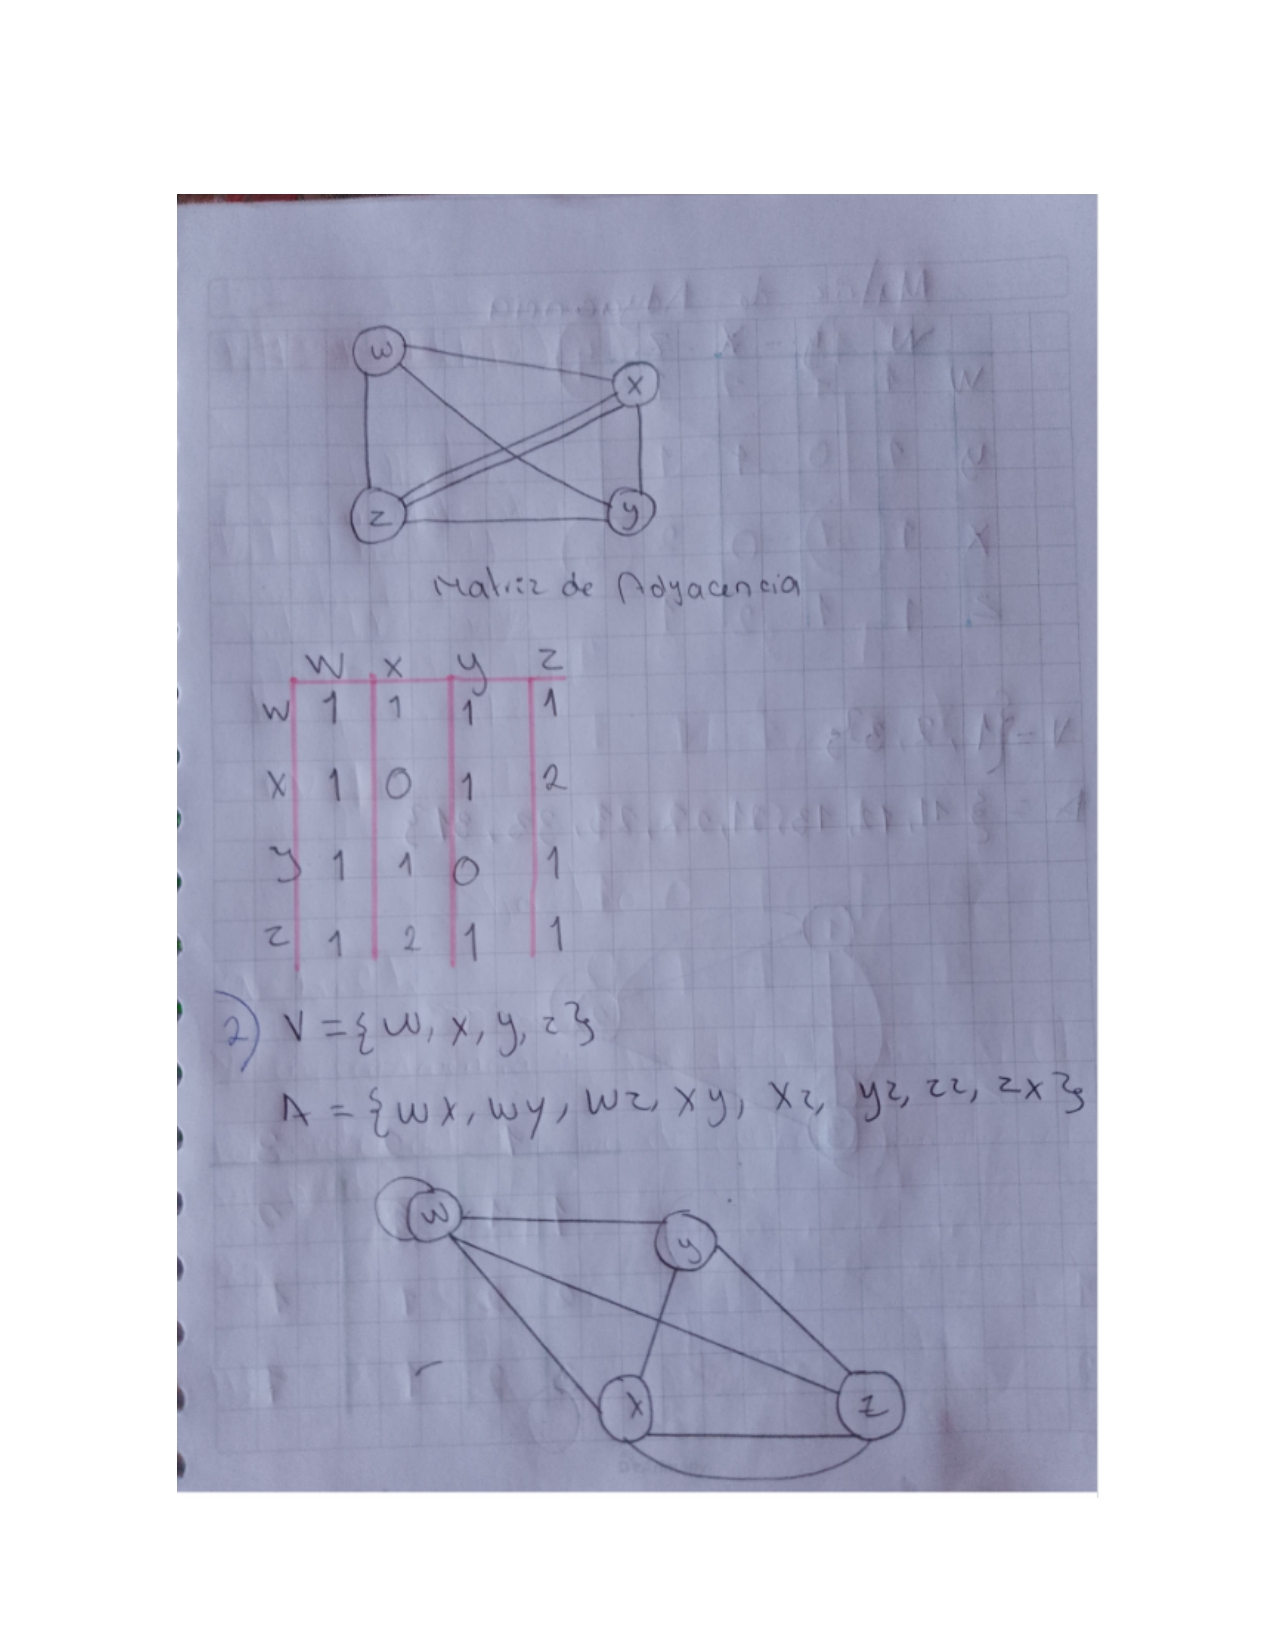 w
x
z
y
Matriz de Adyacencia
W x y z
W 1 1 1 1
X 1 0 1 2
y 1 1 0 1
z 1 2 1 1
2) V = {w, x, y, z}
A = {wx, wy, wz, xy, xz, yz, zz, zx}
w
y
x
z